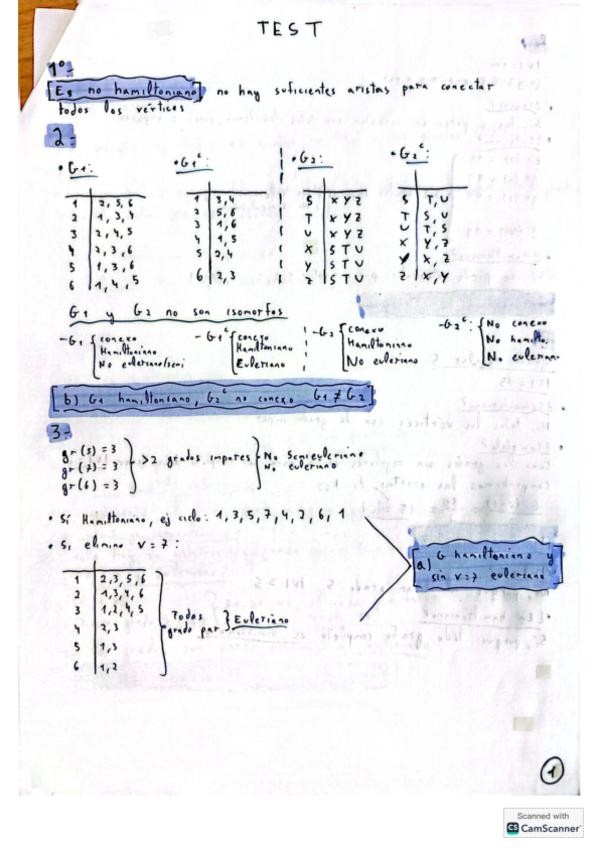 TEST
1º-
Es no hamiltoniano no hay suficientes aristas para conectar
todos los vértices
2-
• G1: • G1ᶜ: • G2: • G2ᶜ:
1 | 2, 5, 6   1 | 3,4   S | X Y Z   S | T, U
2 | 1, 3, 4   2 | 5,6   T | X Y Z   T | S, U
3 | 2, 4, 5   3 | 1,6   U | X Y Z   U | T, S
4 | 2, 3, 6   4 | 1,5   X | S T U   X | Y, Z
5 | 1, 3, 6   5 | 2,4   Y | S T U   Y | X, Z
6 | 1, 4, 5   6 | 2,3   Z | S T U   Z | X, Y
G1 y G2 no son isomorfos
-G1 { conexo   -G1ᶜ { conexo   -G2 { conexo   -G2ᶜ: { No conexo
Hamiltoniano   Hamiltoniano   Hamiltoniano   No hamilto.
No euleriano/semi   Euleriano   No euleriano   No eulerian
b) G1 hamiltoniano, G2ᶜ no conexo G1 ≇ G2
3-
gr(5) = 3
gr(7) = 3 } >2 grados impares } No Semieuleriano
gr(6) = 3   No euleriano
• Sí Hamiltoniano, ej ciclo: 1, 3, 5, 7, 4, 2, 6, 1
• Si elimino v=7:
a) G hamiltoniano y
sin v=7 euleriano
1 | 2, 3, 5, 6
2 | 1, 3, 4, 6
3 | 1, 2, 4, 5
4 | 2, 3
5 | 1, 3
6 | 1, 2
Todos
grado par } Euleriano
1
Scanned with
CS CamScanner